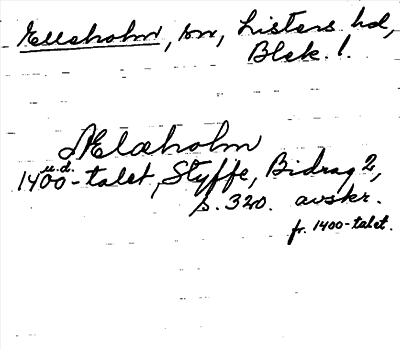 Elleholm, sn, Listers hd,
Blek. l.
Ælæholm
u.d.
1400-talet, Styffe, Bidrag 2,
s. 320. avskr.
fr. 1400-talet.